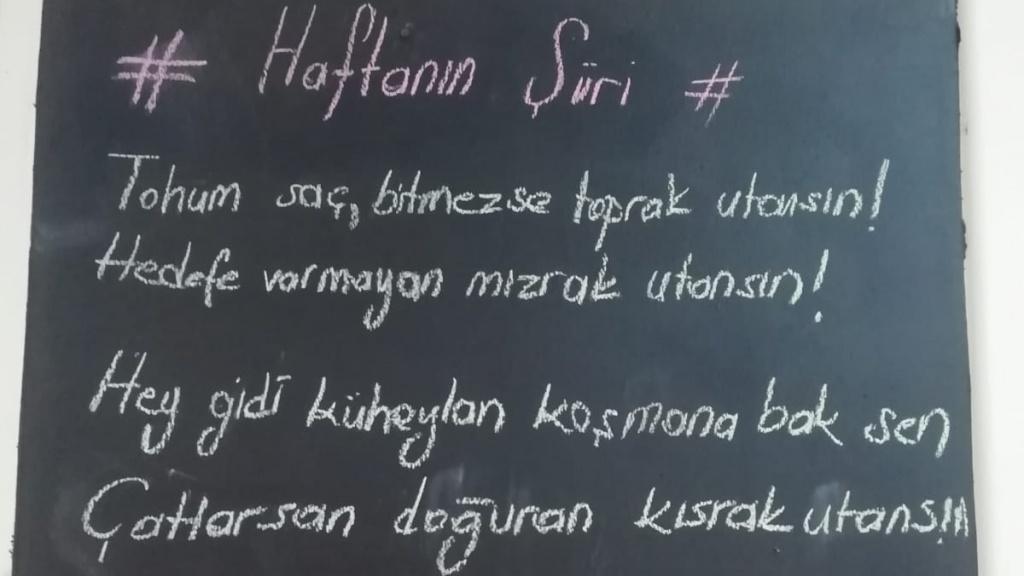 # Haftanın Şiiri #
Tohum saç, bitmezse toprak utansın!
Hedefe varmayan mızrak utansın!
Hey gidi küheylan koşmana bak sen
Çatlarsan doğuran kısrak utansın